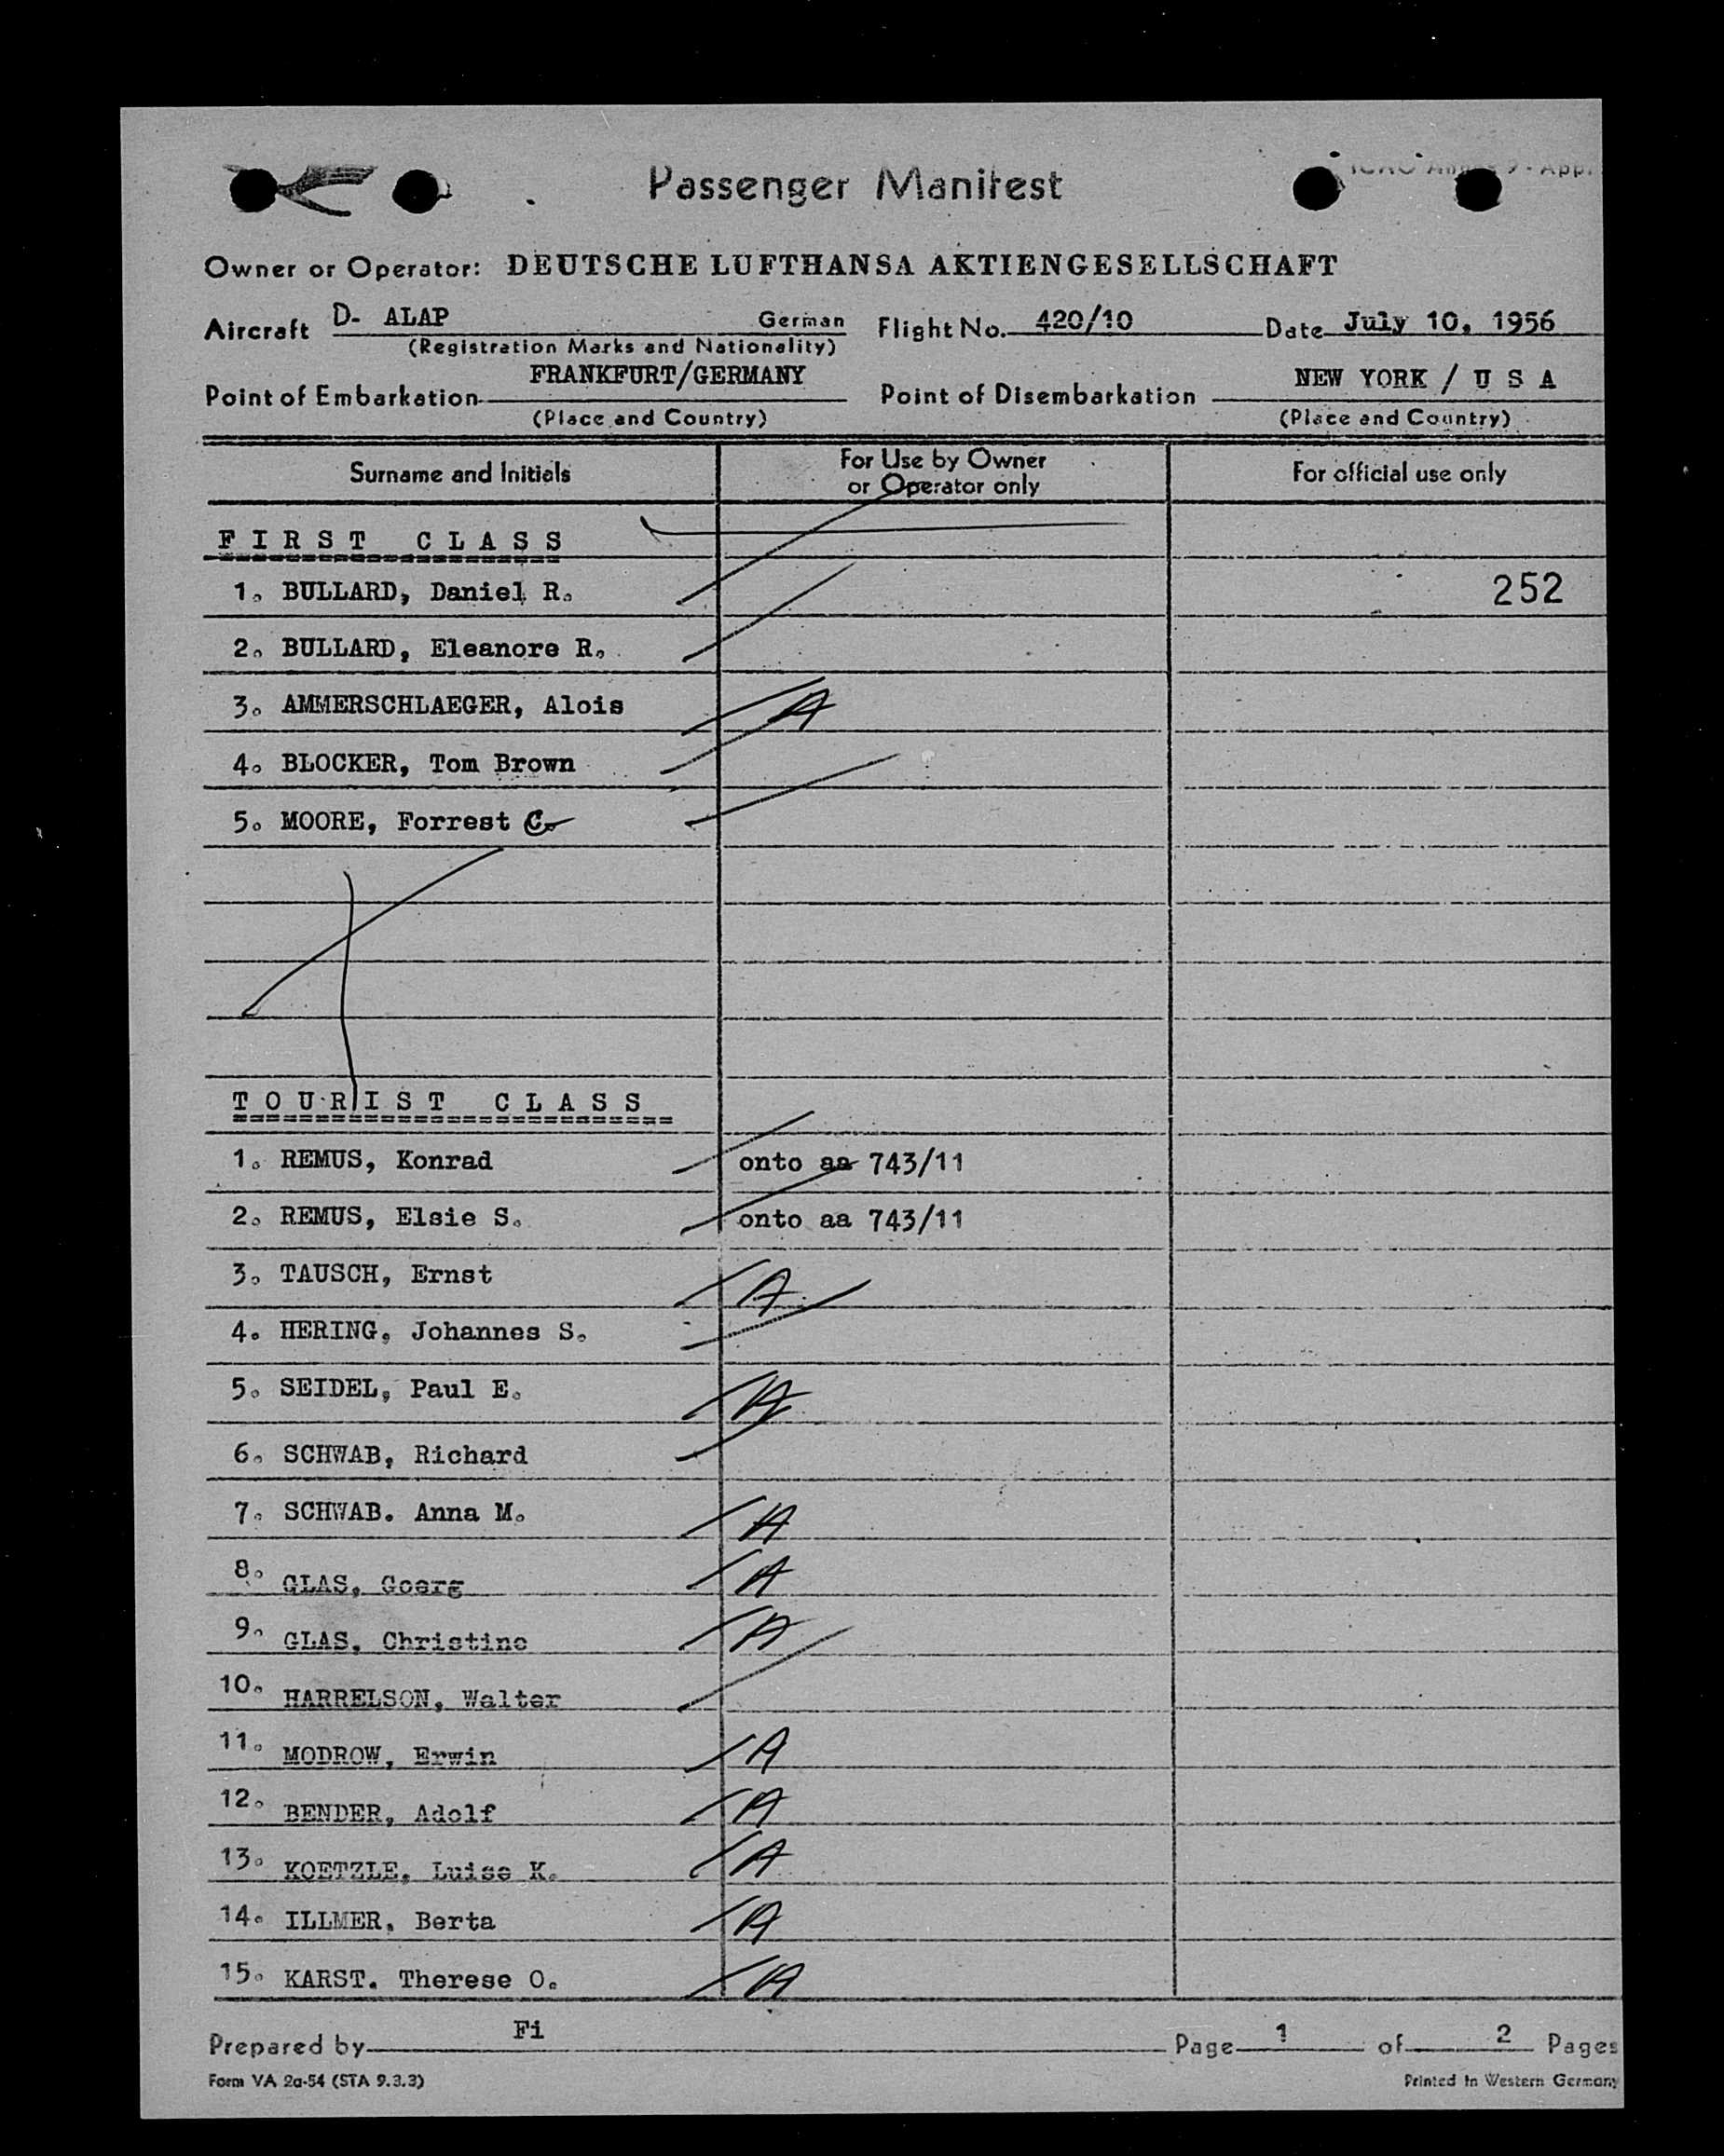 Passenger Manifest
Owner or Operator: DEUTSCHE LUFTHANSA AKTIENGESELLSCHAFT
Aircraft D- ALAP German Flight No. 420/10 Date July 10, 1956
(Registration Marks and Nationality)
Point of Embarkation FRANKFURT/GERMANY Point of Disembarkation NEW YORK / U S A
(Place and Country) (Place and Country)
Surname and Initials For Use by Owner or Operator only For official use only
FIRST CLASS
1. BULLARD, Daniel R. 252
2. BULLARD, Eleanore R.
3. AMMERSCHLAEGER, Alois A
4. BLOCKER, Tom Brown
5. MOORE, Forrest C.
TOURIST CLASS
1. REMUS, Konrad onto aa 743/11
2. REMUS, Elsie S. onto aa 743/11
3. TAUSCH, Ernst A
4. HERING, Johannes S.
5. SEIDEL, Paul E. A
6. SCHWAB, Richard
7. SCHWAB. Anna M. A
8. GLAS, Goerg A
9. GLAS, Christine A
10. HARRELSON, Walter
11. MODROW, Erwin A
12. BENDER, Adolf A
13. KOETZLE, Luise K. A
14. ILLMER, Berta A
15. KARST. Therese O. A
Prepared by Fi Page 1 of 2 Pages
Form VA 2a-54 (STA 9.3.3) Printed in Western Germany